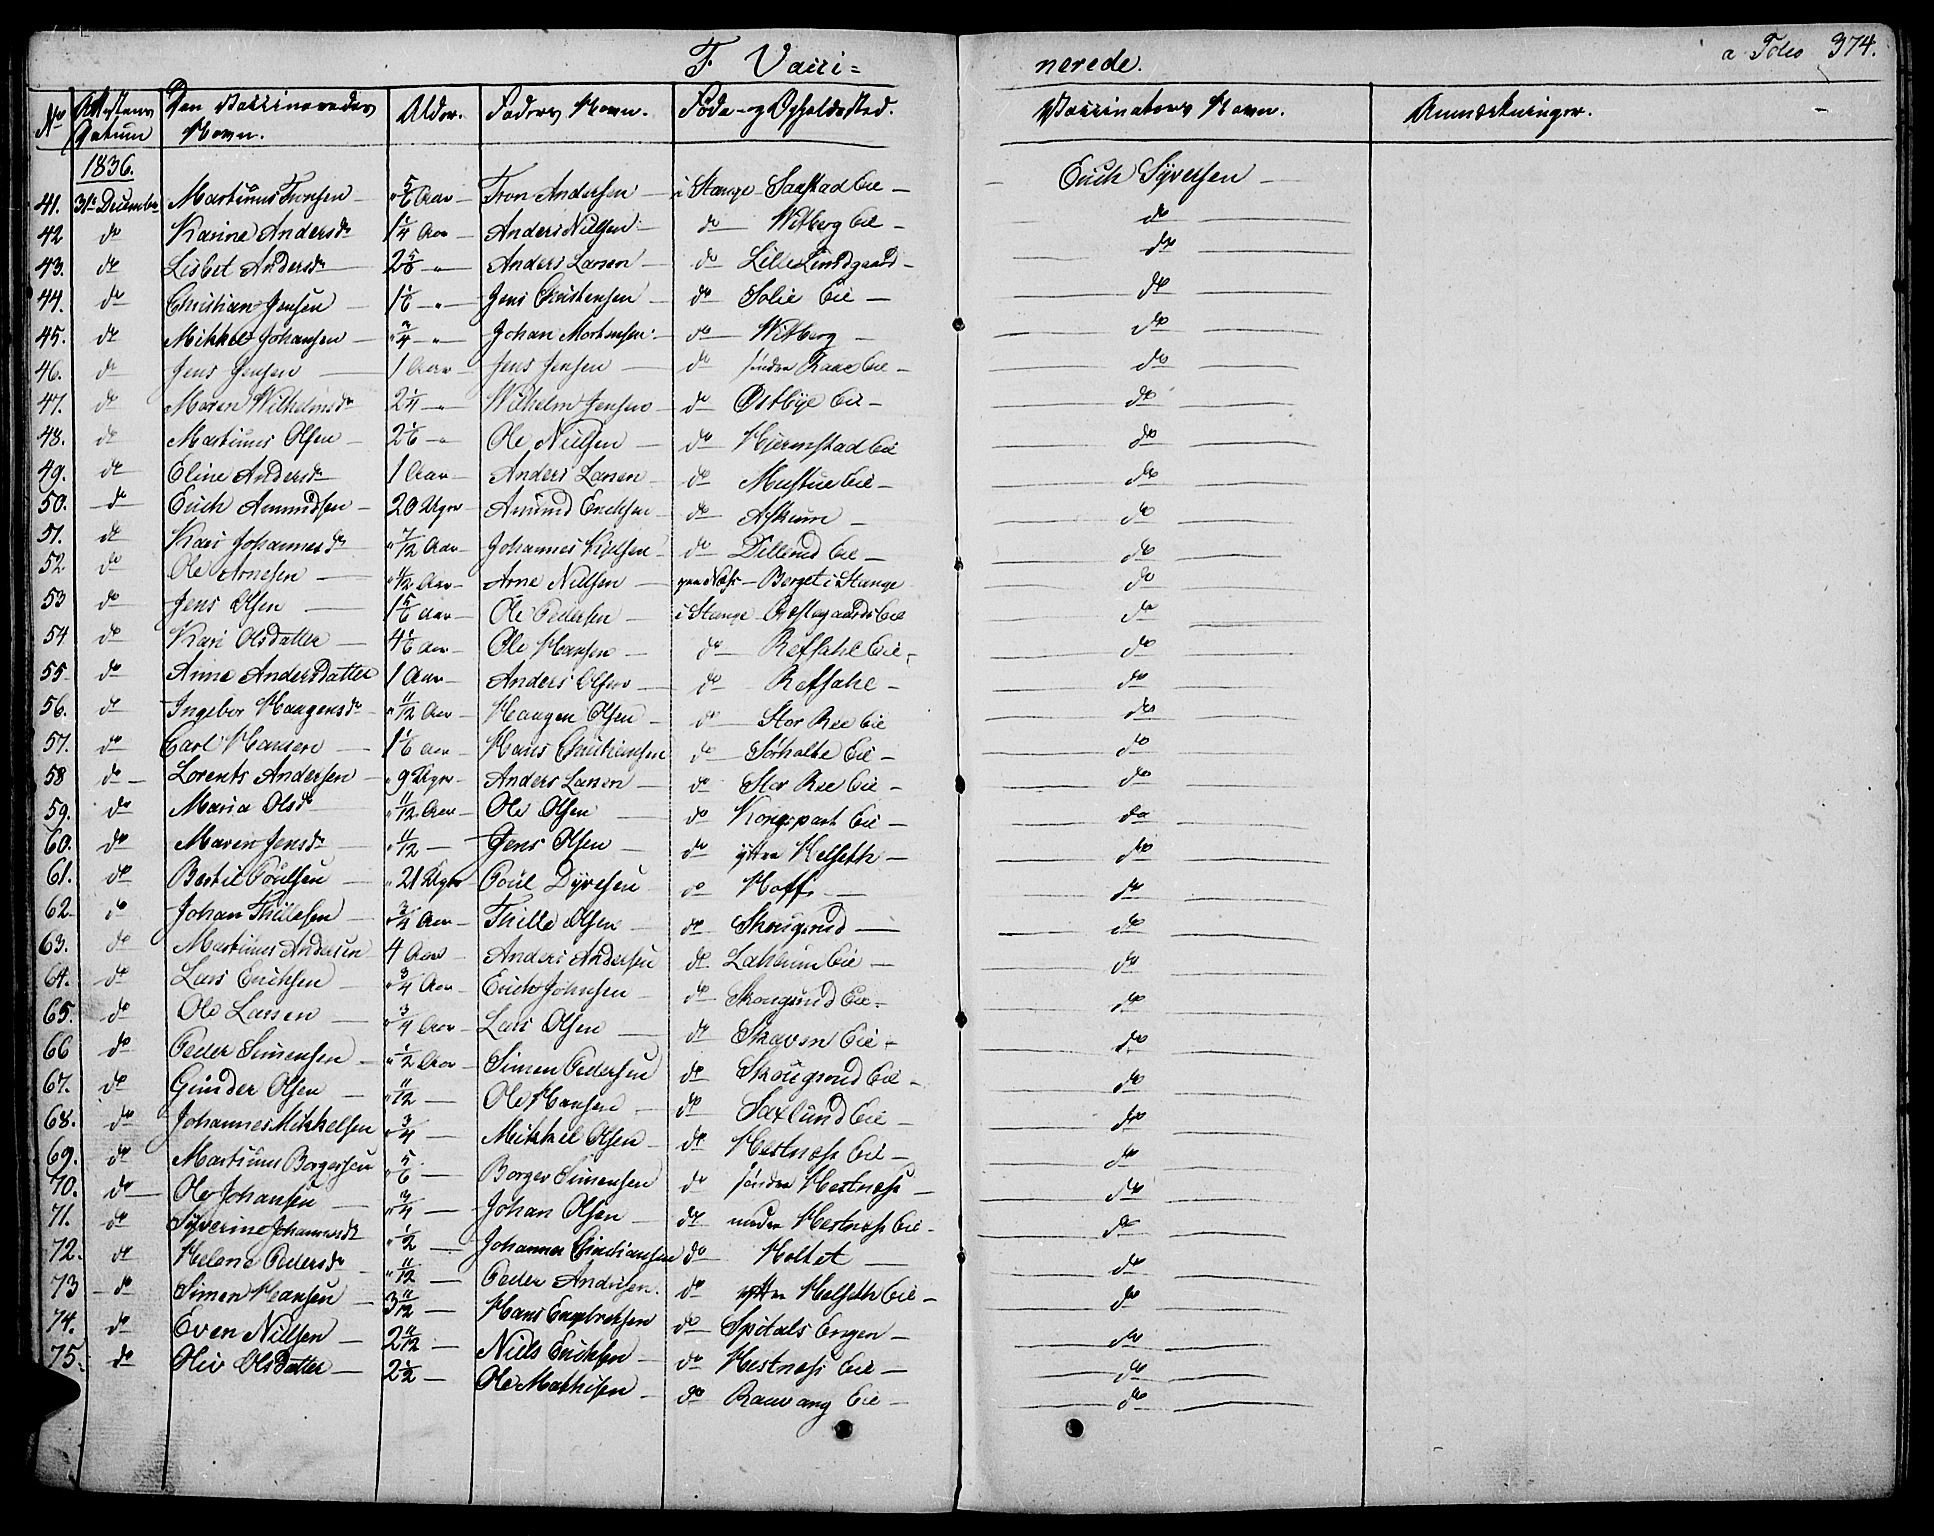 F. Vacci= nerede. a Folio 374.
No Attestens Datum Den Vaccineredes Navn. Alder. Faders Navn. Føde- og Opholdssted. Vaccinateurs Navn. Anmærkninger.
1836.
41. 31te December Martinus Tronsen " 5/6 Aar Tron Andersen i Stange Saxstad Eie Erich Syversen
42 do Karine Andersdr 1 1/4 Aar Anders Nilsen do Witberg Eie do
43. do Lisbet Andersdr 2 5/6 " Anders Larsen do Lille Lindgaard do
44. do Christian Jensen 1 1/6 " Jens Christensen do Solie Eie do
45. do Mikkel Johansen " 3/4 " Johan Mortensen do Witberg do
46. do Jens Jensen 1 Aar Jens Jensen do søndre Raae Eie do
47. do Maren Wilhelmsdr 2 1/4 " Wilhelm Jensen do Østbye Eie do
48. do Martinus Olsen 2 1/6 " Ole Nielsen do Hjermstad Eie do
49. do Eline Andersdr 1 Aar Anders Larsen do Mustue Eie do
50. do Erich Amundsen 20 Uger Amund Erichsen do Askum do
51. do Kari Johannesdr " 7/12 Aar Johannes Nielsen do Dillerud Eie do
52 do Ole Arnesen " 1/2 Aar Arne Nilsen paa Næss Berget i Stange do
53 do Jens Olsen 1 5/6 Aar Ole Pedersen i Stange Præstegaards Eie do
54 do Kari Olsdatter 4 1/6 Aar Ole Hansen do Refsahl Eie do
55 do Anne Andersdatter 1 Aar Anders Olsen do Refsahl do
56. do Ingebor Haagensdr " 11/12 Aar Haagen Olsen do Stor Ree Eie do
57. do Carl Hansen 1 1/6 Aar Hans Christiansen do Sørholte Eie do
58 do Lorents Andersen " 9 Uger Anders Larsen do Stor Ree Eie do
59. do Maria Olsdr " 11/12 Aar Ole Olsen do Kongspart Eie do
60. do Maren Jensdr " 11/12 Jens Olsen do yttre Helseth do
61. do Bertil Poulsen " 21 Uger Poul Dyresen do Hoff do
62 do Johan Thillesen " 3/4 Aar Thille Olsen do Skougrud do
63. do Martinus Andersen 4 Aar Anders Andersen do Lahlum Eie do
64. do Lars Erichsen " 3/4 Aar Erich Johnsen do Skougrud Eie do
65. do Ole Larsen " 3/4 Aar Lars Olsen do Skaven Eie do
66 do Peder Simensen " 1/2 Aar Simen Pedersen do Skougrud Eie do
67. do Gunder Olsen " 11/12 Ole Hansen do Saxlund Eie do
68. do Johannes Mikkelsen " 3/4 Mikkel Olsen do Hestnæss Eie do
69. do Martinus Borgersen " 5/6 Borger Simensen do søndre Hestnæss do
70. do Ole Johansen " 3/4 Johan Olsen do nedre Hestnæss Eie do
71. do Syverine Johannesdr " 1/2 Johannes Christiansen do Holtet do
72. do Helene Pedersdr " 11/12 Peder Andersen do yttre Helseth Eie do
73 do Simen Hansen 3 11/12 Hans Engebretsen do Spitals Engen do
74. do Even Nilsen 2 11/12 Niels Erichsen do Hestnæss Eie do
75. do Olia Olsdatter 2 1/2 Ole Mathisen do Raavang Eie do